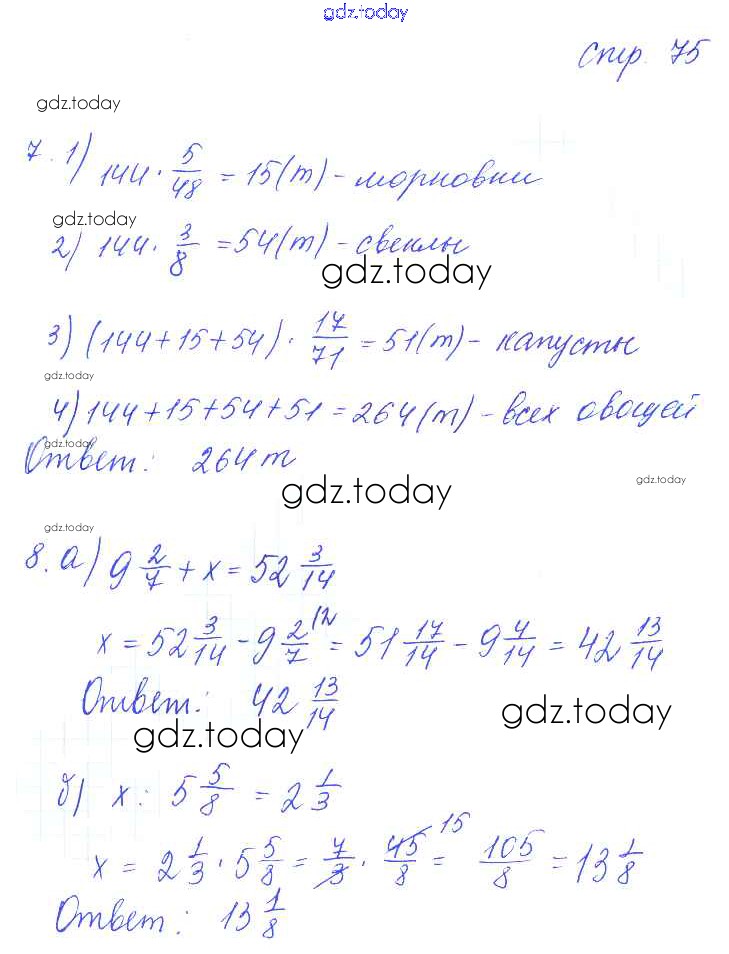 gdz.today
стр. 75
gdz.today
7. 1) 144 · 5/48 = 15(т) - морковки
gdz.today
2) 144 · 3/8 = 54(т) - свеклы
gdz.today
3) (144+15+54) · 17/71 = 51(т) - капусты
gdz.today
4) 144+15+54+51 = 264(т) - всех овощей
gdz.today
Ответ: 264 т
gdz.today
gdz.today
gdz.today
8. а) 9 2/7 + x = 52 3/14
x = 52 3/14 - 9 2/7 /2 = 51 17/14 - 9 4/14 = 42 13/14
Ответ: 42 13/14
gdz.today
gdz.today
б) x : 5 5/8 = 2 1/3
x = 2 1/3 · 5 5/8 = 7/3 · 45/8 15 = 105/8 = 13 1/8
Ответ: 13 1/8